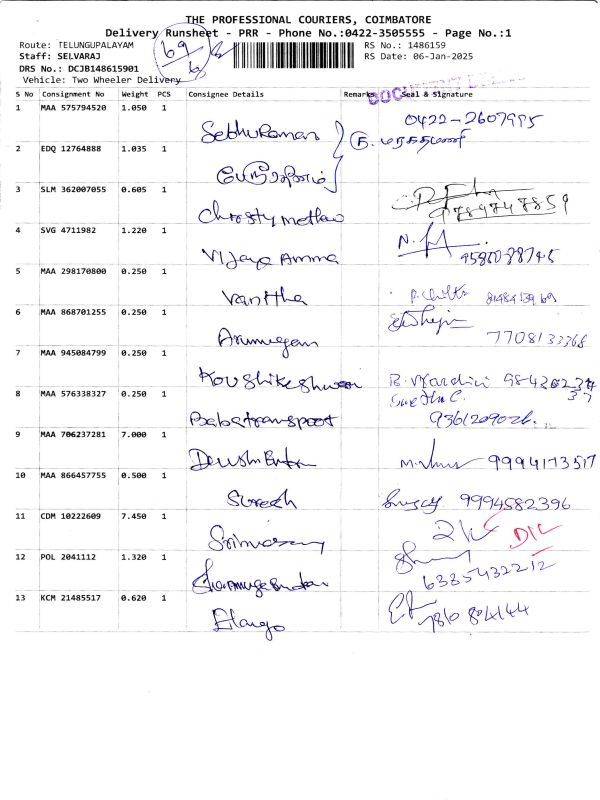 THE PROFESSIONAL COURIERS, COIMBATORE
Delivery Runsheet - PRR - Phone No.:0422-3505555 - Page No.:1
Route: TELUNGUPALAYAM RS No.: 1486159
Staff: SELVARAJ RS Date: 06-Jan-2025
DRS No.: DCJB148615901
Vehicle: Two Wheeler Delivery
S No Consignment No Weight PCS Consignee Details Remarks Seal & Signature
1 MAA 575794520 1.050 1 Sethuraman 0422-2607995
2 EDQ 12764888 1.035 1
3 SLM 362007055 0.605 1 Christy mathew 9789747859
4 SVG 4711982 1.220 1 Vijaya Amma
5 MAA 298170800 0.250 1 Vanitha
6 MAA 868701255 0.250 1 Arumugam 7708133368
7 MAA 945084799 0.250 1 Koushikeshwaran
8 MAA 576338327 0.250 1 Babatransport Swetha C.
9 MAA 706237281 7.000 1 9994173517
10 MAA 866457755 0.500 1 Suresh 9994582396
11 CDM 10222609 7.450 1 Srinivasan
12 POL 2041112 1.320 1 6385432212
13 KCM 21485517 0.620 1 Elango